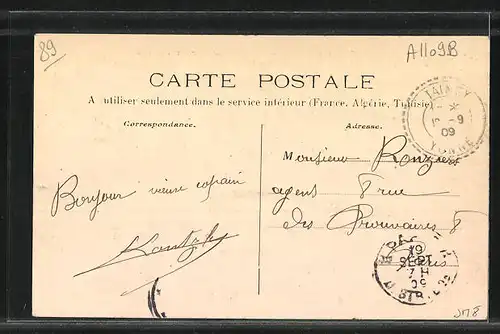 89
A1109B
CARTE POSTALE
A utiliser seulement dans le service intérieur (France, Algérie, Tunisie)
Correspondance.
Adresse.
YONNE
09
Monsieur
agent 8 rue
des Prouvaires 8
Paris
Bonjour vieux copain
19
SEPT
7 H
09
JM8